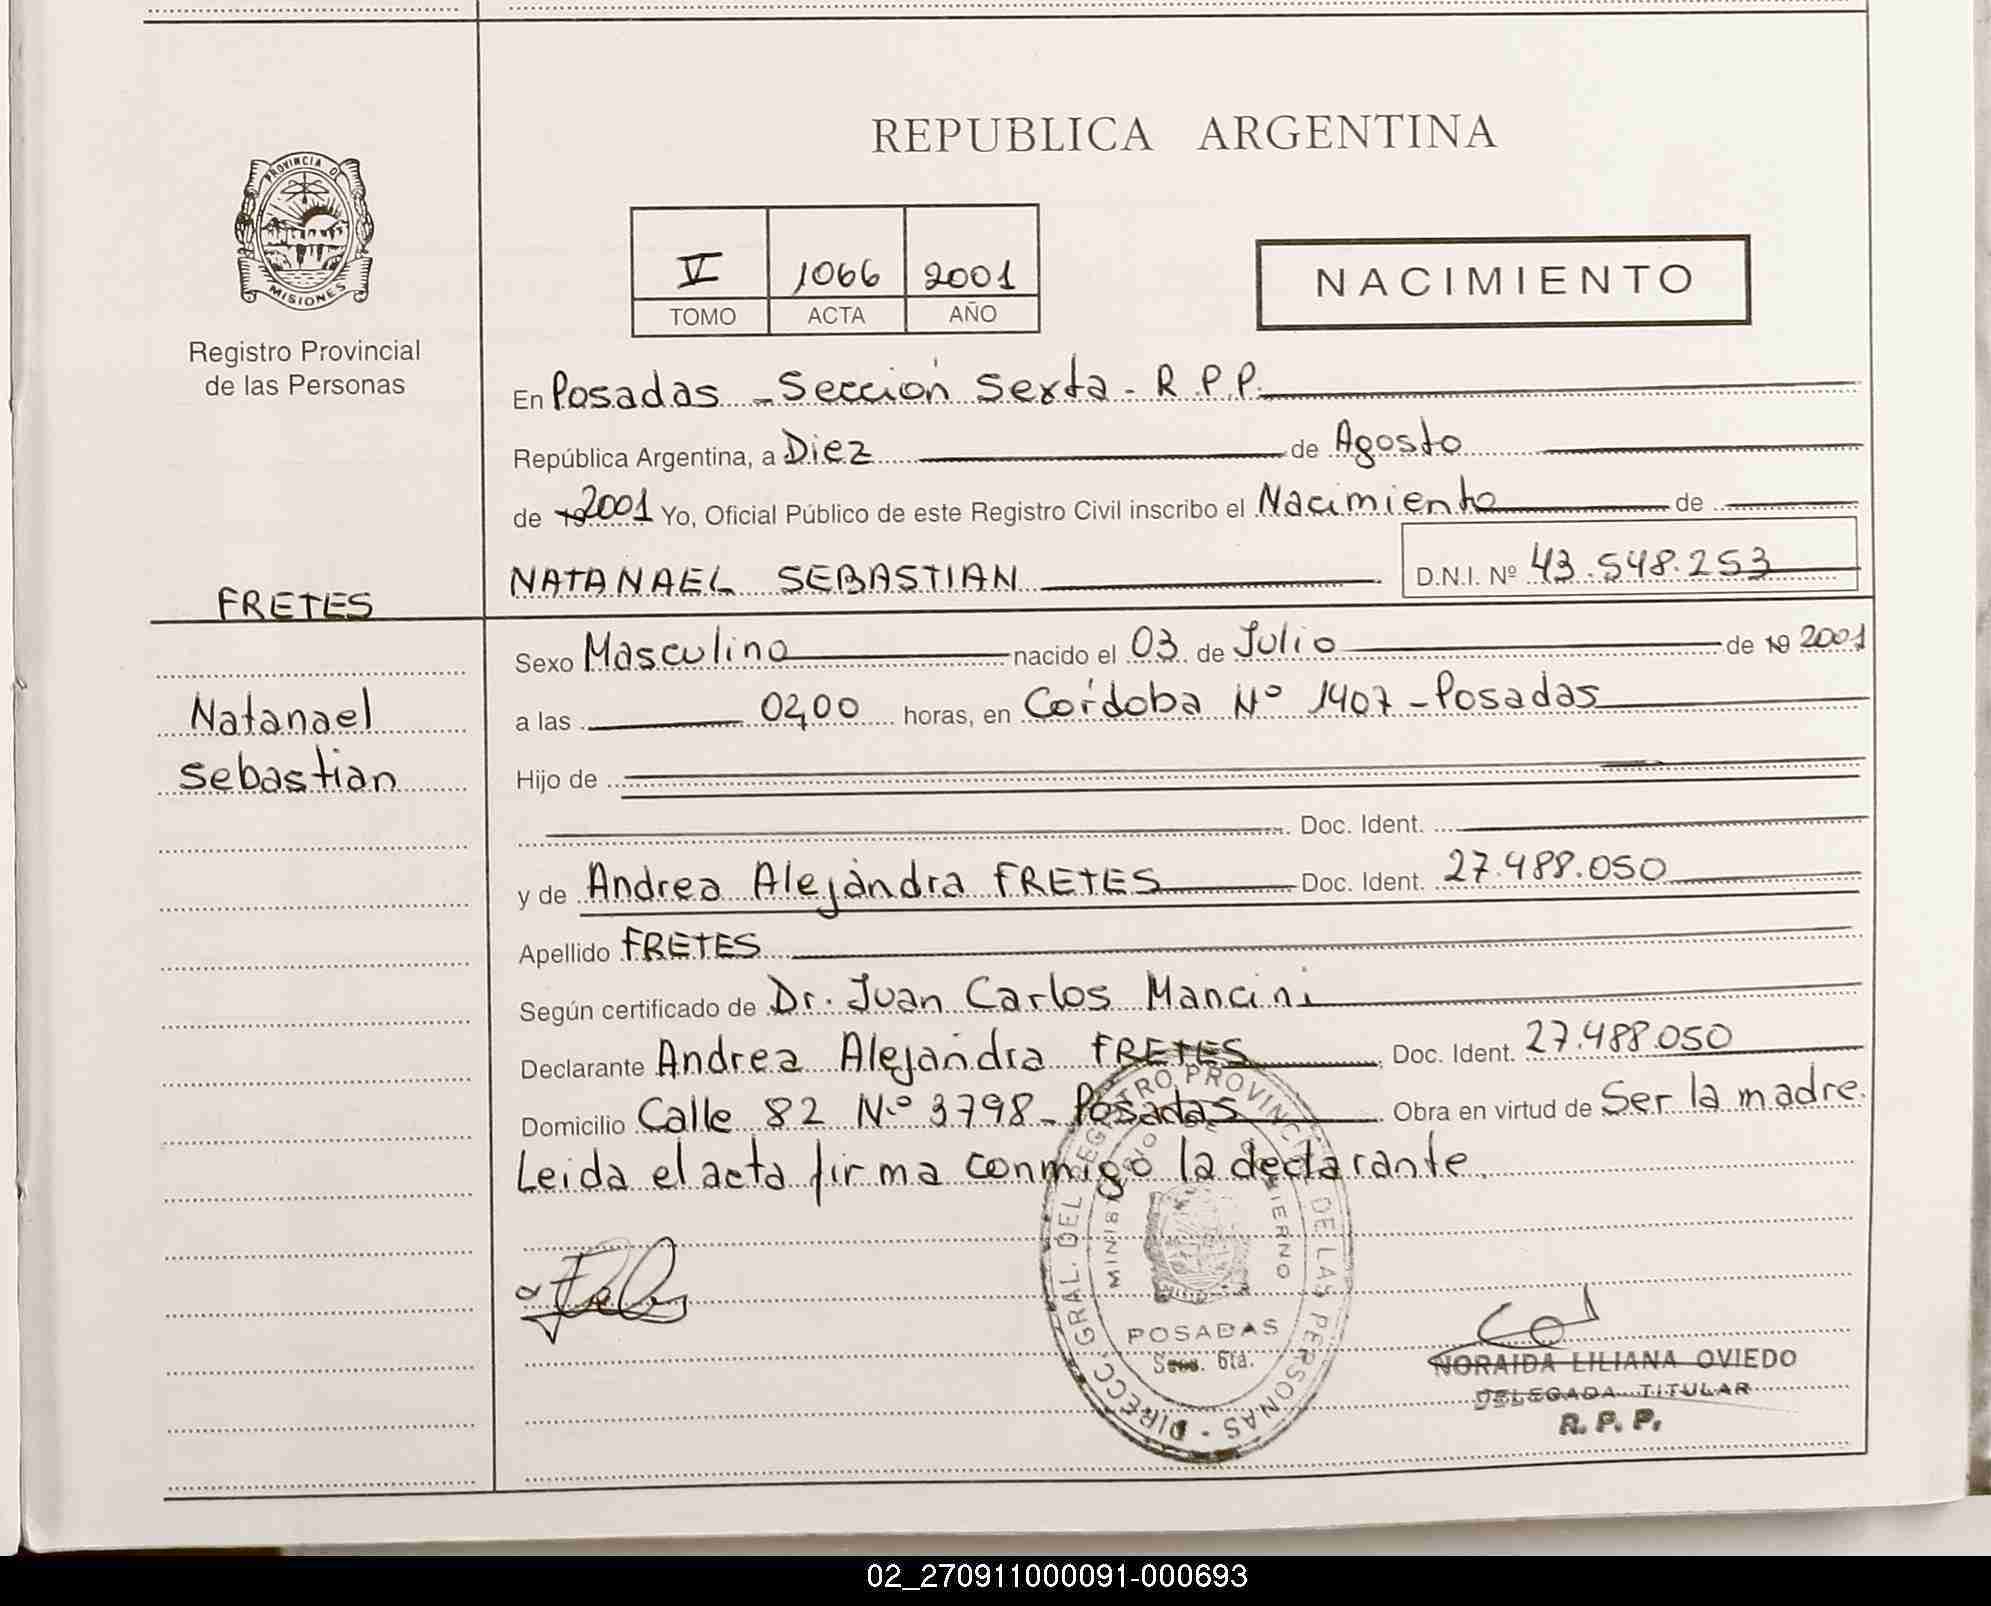 REPUBLICA ARGENTINA
PROVINCIA DE
MISIONES
Registro Provincial
de las Personas
V 1066 2001
TOMO ACTA AÑO
NACIMIENTO
En Posadas - Sección Sexta - R.P.P.
República Argentina, a Diez de Agosto
de 19 2001 Yo, Oficial Público de este Registro Civil inscribo el Nacimiento de
NATANAEL SEBASTIAN D.N.I. Nº 43.548.253
FRETES
Natanael
Sebastian
Sexo Masculino nacido el 03 de Julio de 19 2001
a las 02,00 horas, en Córdoba Nº 1407 - Posadas
Hijo de
Doc. Ident.
y de Andrea Alejandra FRETES Doc. Ident. 27.488.050
Apellido FRETES
Según certificado de Dr. Juan Carlos Mancini
Declarante Andrea Alejandra FRETES Doc. Ident. 27.488.050
Domicilio Calle 82 N.º 3798 - Posadas Obra en virtud de Ser la madre.
Leida el acta firma conmigo la declarante.
DIRECC. GRAL. DEL REGISTRO PROVINCIAL DE LAS PERSONAS
MINISTERIO DE GOBIERNO
POSADAS
Secc. 6ta.
NORAIDA LILIANA OVIEDO
DELEGADA TITULAR
R. P. P.
02_270911000091-000693